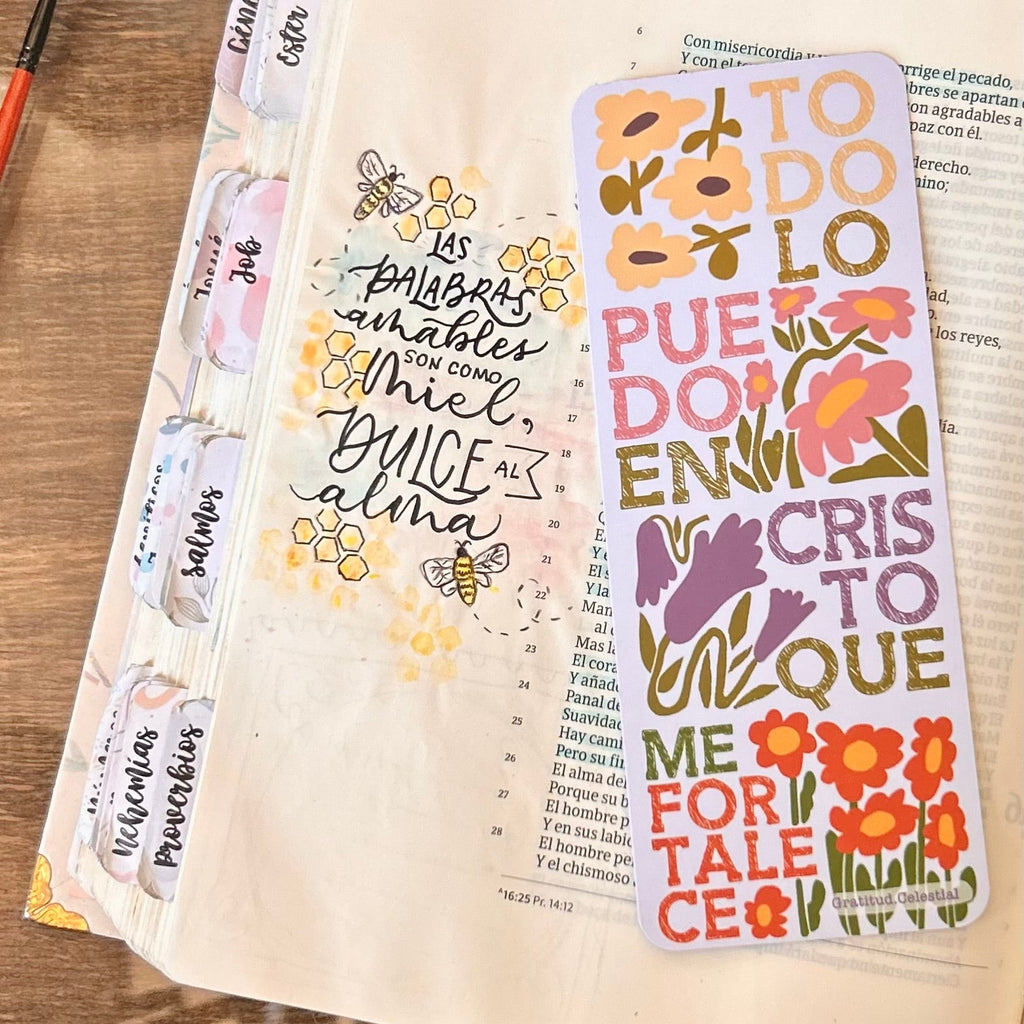 Ester
Job
Salmos
Nehemías
Proverbios
LAS
PALABRAS
amables
SON COMO
Miel,
DULCE AL
alma
6
Con misericordia y
7
Y con el
orrige el pecado,
bres se apartan
on agradables a
paz con él.
derecho.
mino;
dad,
los reyes,
día.
15
16
17
18
19
20
21
22
Man
al
23
Mas la
El cora
24
Y añade
Panal de
25
Suavidad
Hay cami
26
Pero su fin
El alma de
27
Porque su b
El hombre p
28
Y en sus labio
El hombre pe
Y el chismoso
A16:25 Pr. 14:12
TO
DO
LO
PUE
DO
EN
CRIS
TO
QUE
ME
FOR
TALE
CE
Gratitud.Celestial